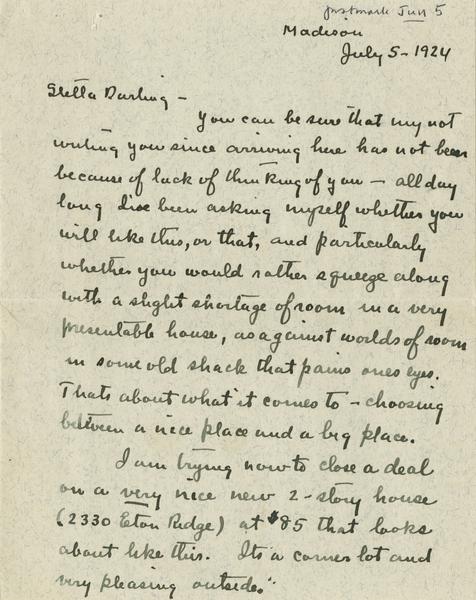 postmark Jun 5
Madison
July 5 - 1924
Stella Darling -
You can be sure that my not
writing you since arriving here has not been
because of lack of thinking of you - all day
long I've been asking myself whether you
will like this, or that, and particularly
whether you would rather squeeze along
with a slight shortage of room in a very
presentable house, as against worlds of room
in some old shack that pains ones eyes.
Thats about what it comes to - choosing
between a nice place and a big place.
I am trying now to close a deal
on a very nice new 2-story house
(2330 Eton Ridge) at $85 that looks
about like this. Its a corner lot and
very pleasing outside."